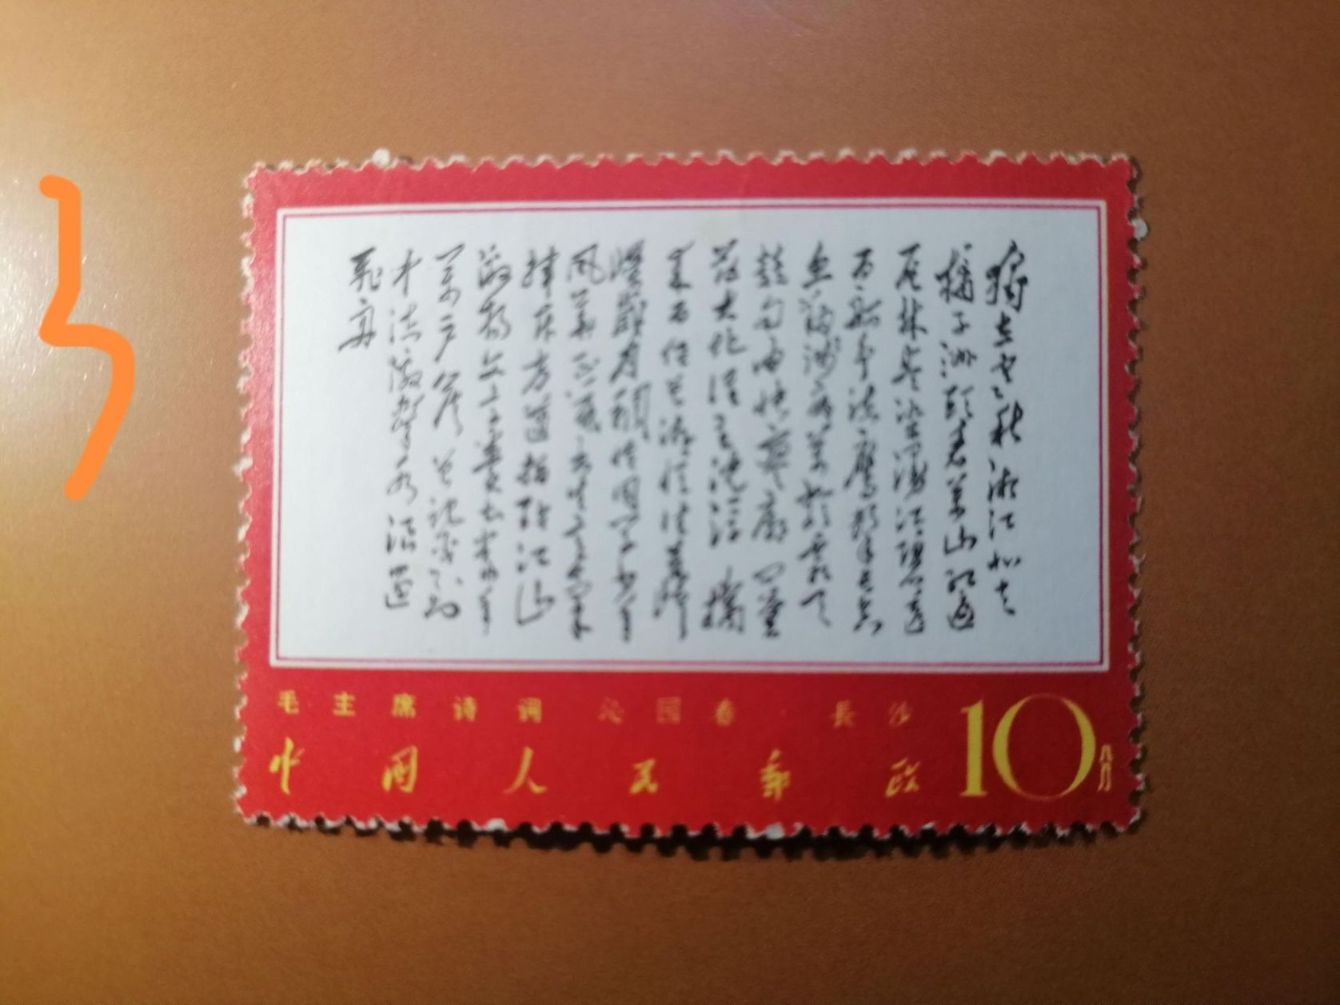 独立寒秋湘江北去
橘子洲头看万山红遍
层林尽染漫江碧透
百舸争流鹰击长空
鱼翔浅底万类霜天
竞自由怅寥廓问苍
茫大地谁主沉浮携
来百侣曾游忆往昔峥
嵘岁月稠恰同学少年
风华正茂书生意气
挥斥方遒指点江山
激扬文字粪土当年
万户侯曾记否到
中流击水浪遏
飞舟
毛主席诗词 沁园春·長沙
中国人民郵政
10分